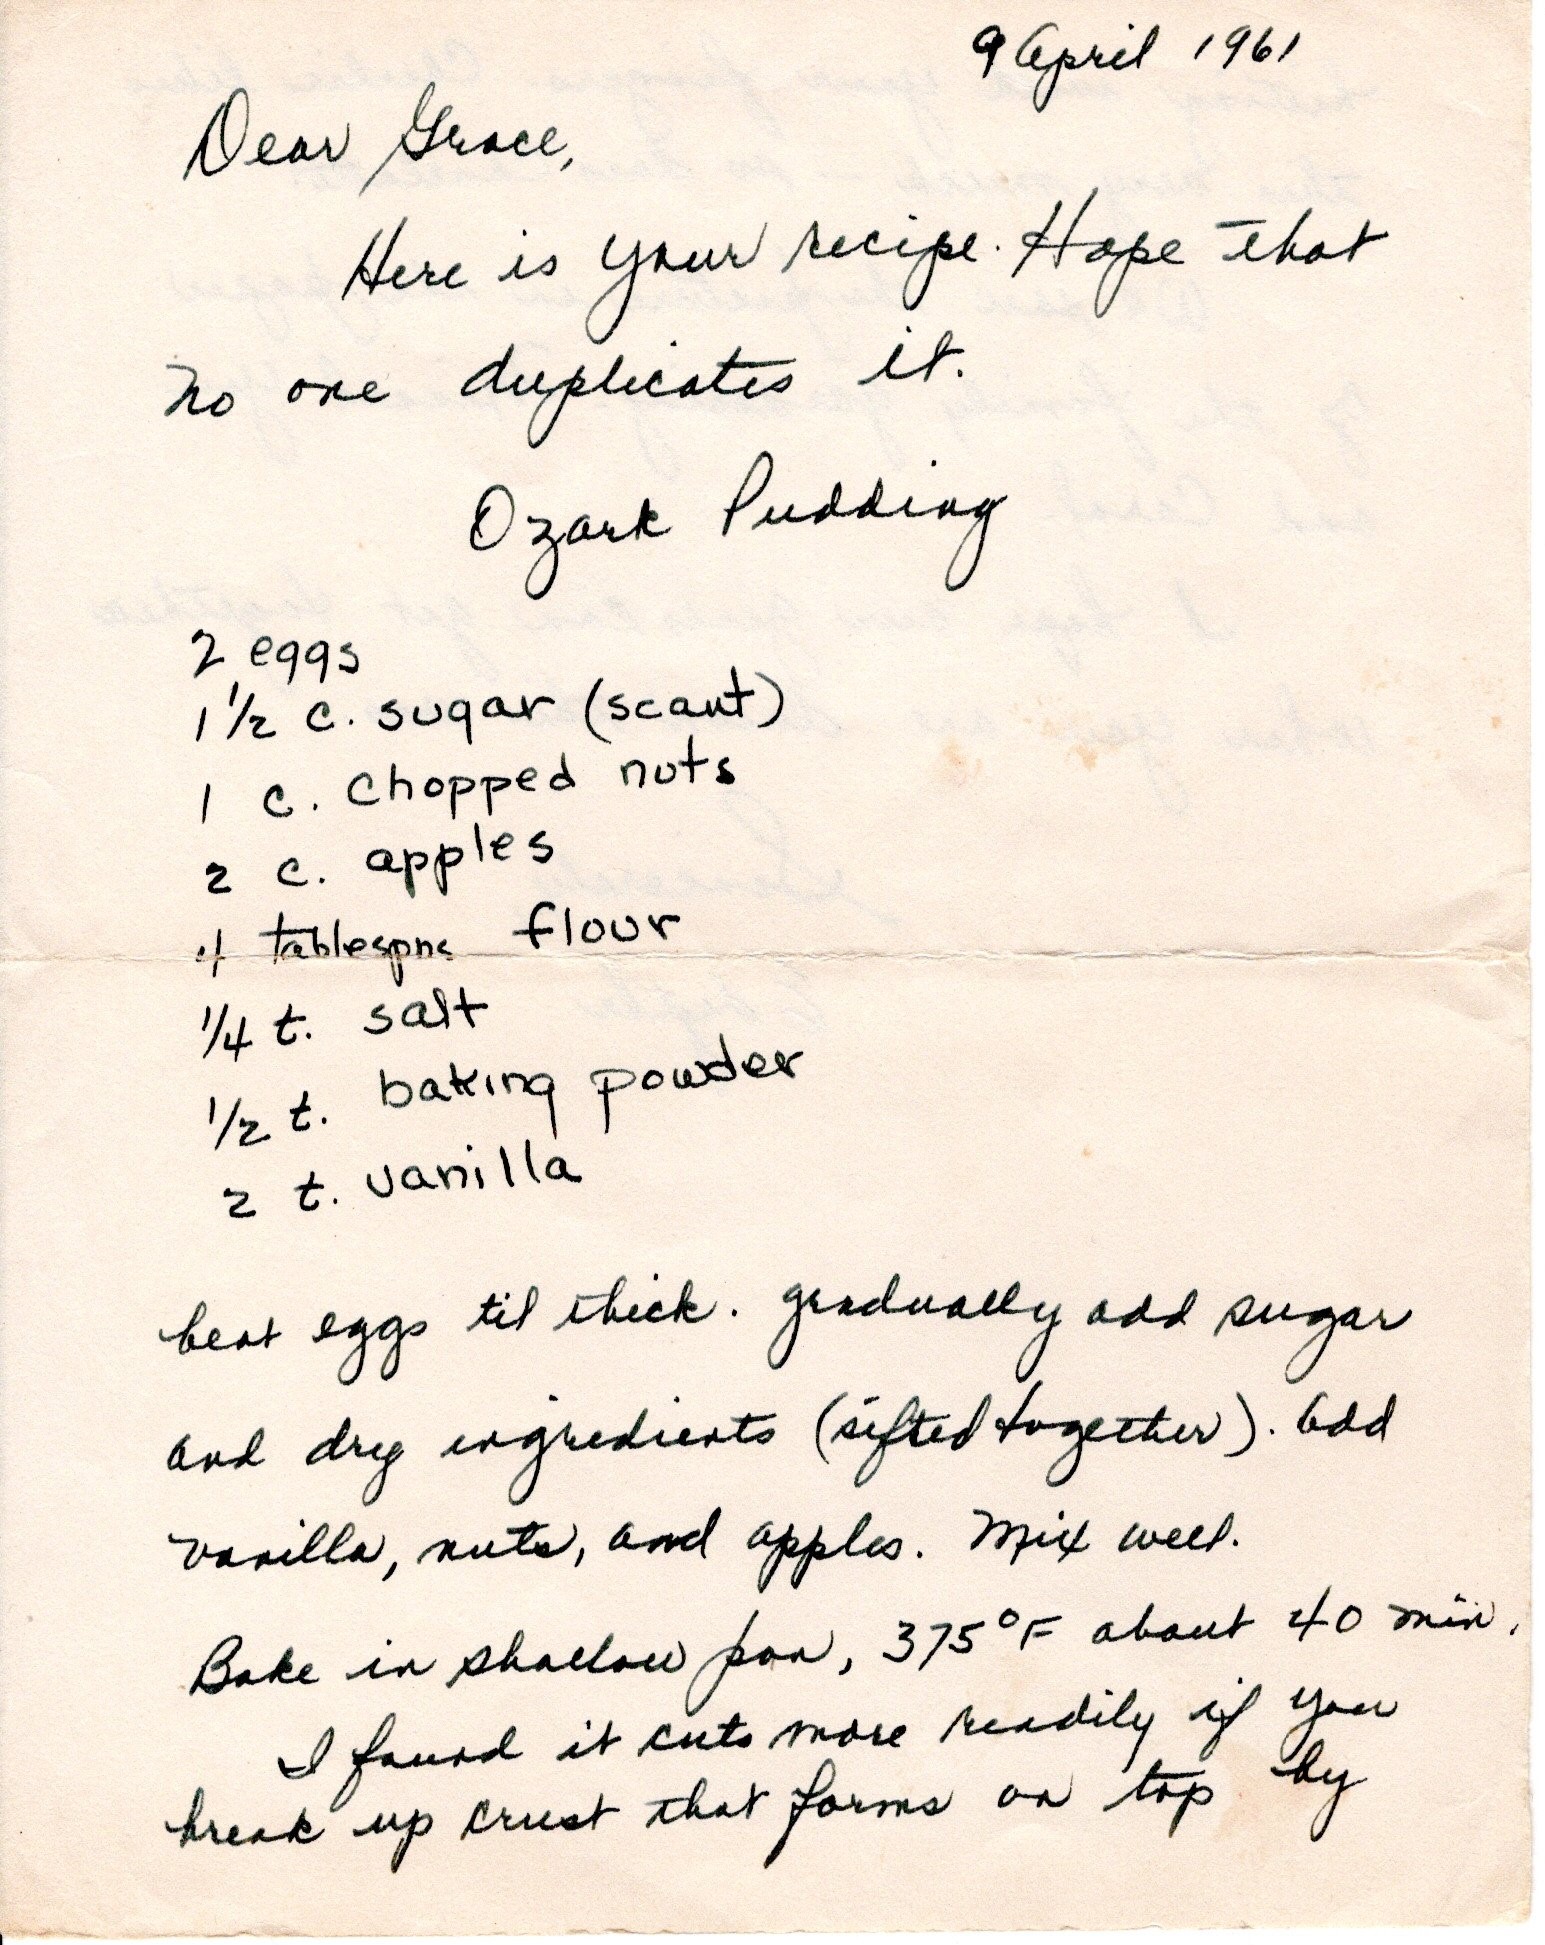 9 April 1961
Dear Grace,
Here is your recipe. Hope that
no one duplicates it.
Ozark Pudding
2 eggs
1 1/2 c. sugar (scant)
1 c. chopped nuts
2 c. apples
4 tablespns flour
1/4 t. salt
1/2 t. baking powder
2 t. vanilla
beat eggs til thick. gradually add sugar
and dry ingredients (sifted together). Add
vanilla, nuts, and apples. Mix well.
Bake in shallow pan, 375°F about 40 min.
I found it cuts more readily if you
break up crust that forms on top by